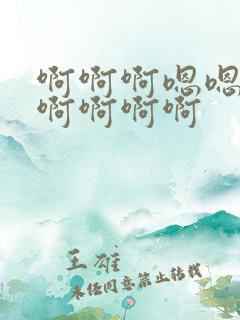 啊啊啊嗯嗯
啊啊啊啊
王雄
未经同意禁止转载